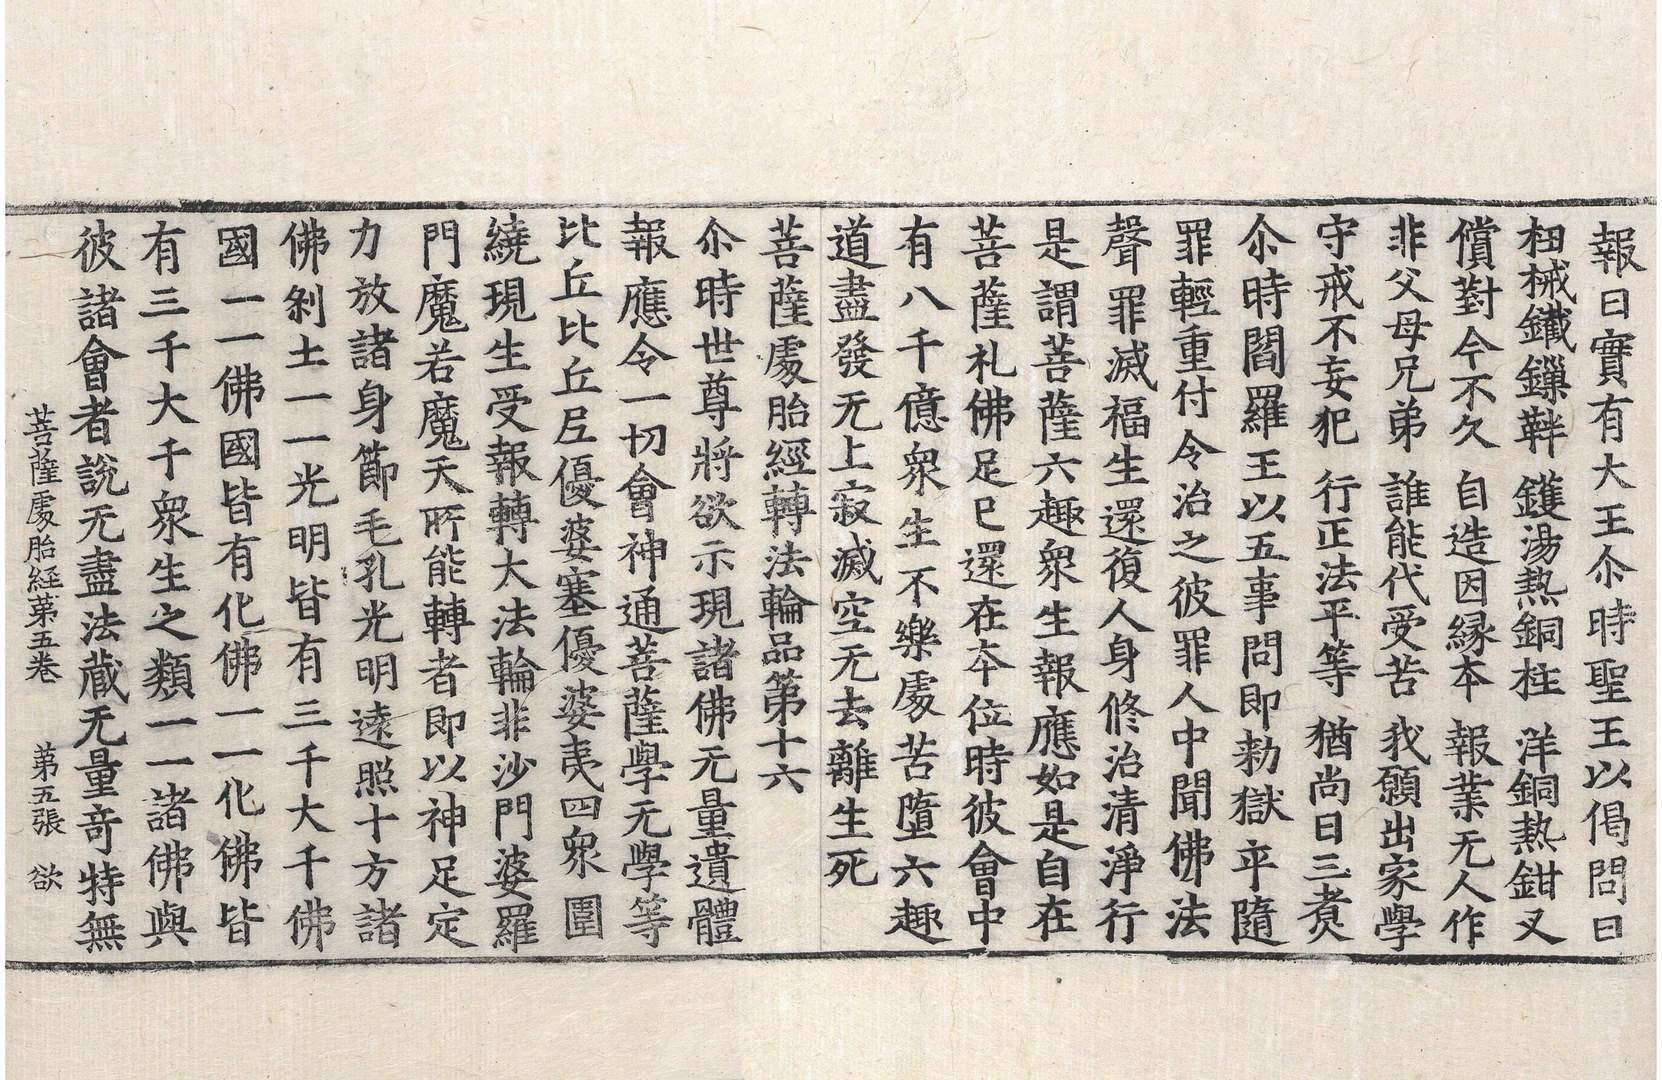 報曰實有大王尒時聖王以偈問曰
杻械鑯鏁靽 鑊湯熱銅柱 洋銅熱鉗叉
償對今不久 自造因緣本 報業无人作
非父母兄弟 誰能代受苦 我願出家學
守戒不妄犯 行正法平等 猶尚日三煑
尒時閻羅王以五事問即勑獄卒隨
罪輕重付令治之彼罪人中聞佛法
聲罪滅福生還復人身修治清淨行
是謂菩薩六趣衆生報應如是自在
菩薩礼佛足已還在本位時彼會中
有八千億衆生不樂處苦墮六趣
道盡發无上寂滅空无去離生死
菩薩處胎經轉法輪品第十六
尒時世尊將欲示現諸佛无量遺體
報應令一切會神通菩薩學无學等
比丘比丘尼優婆塞優婆夷四衆圍
繞現生受報轉大法輪非沙門婆羅
門魔若魔天所能轉者即以神足定
力放諸身節毛孔光明遠照十方諸
佛刹土一一光明皆有三千大千佛
國一一佛國皆有化佛一一化佛皆
有三千大千衆生之類一一諸佛與
彼諸會者說无盡法藏无量奇特無
菩薩處胎経第五卷 第五張 欲